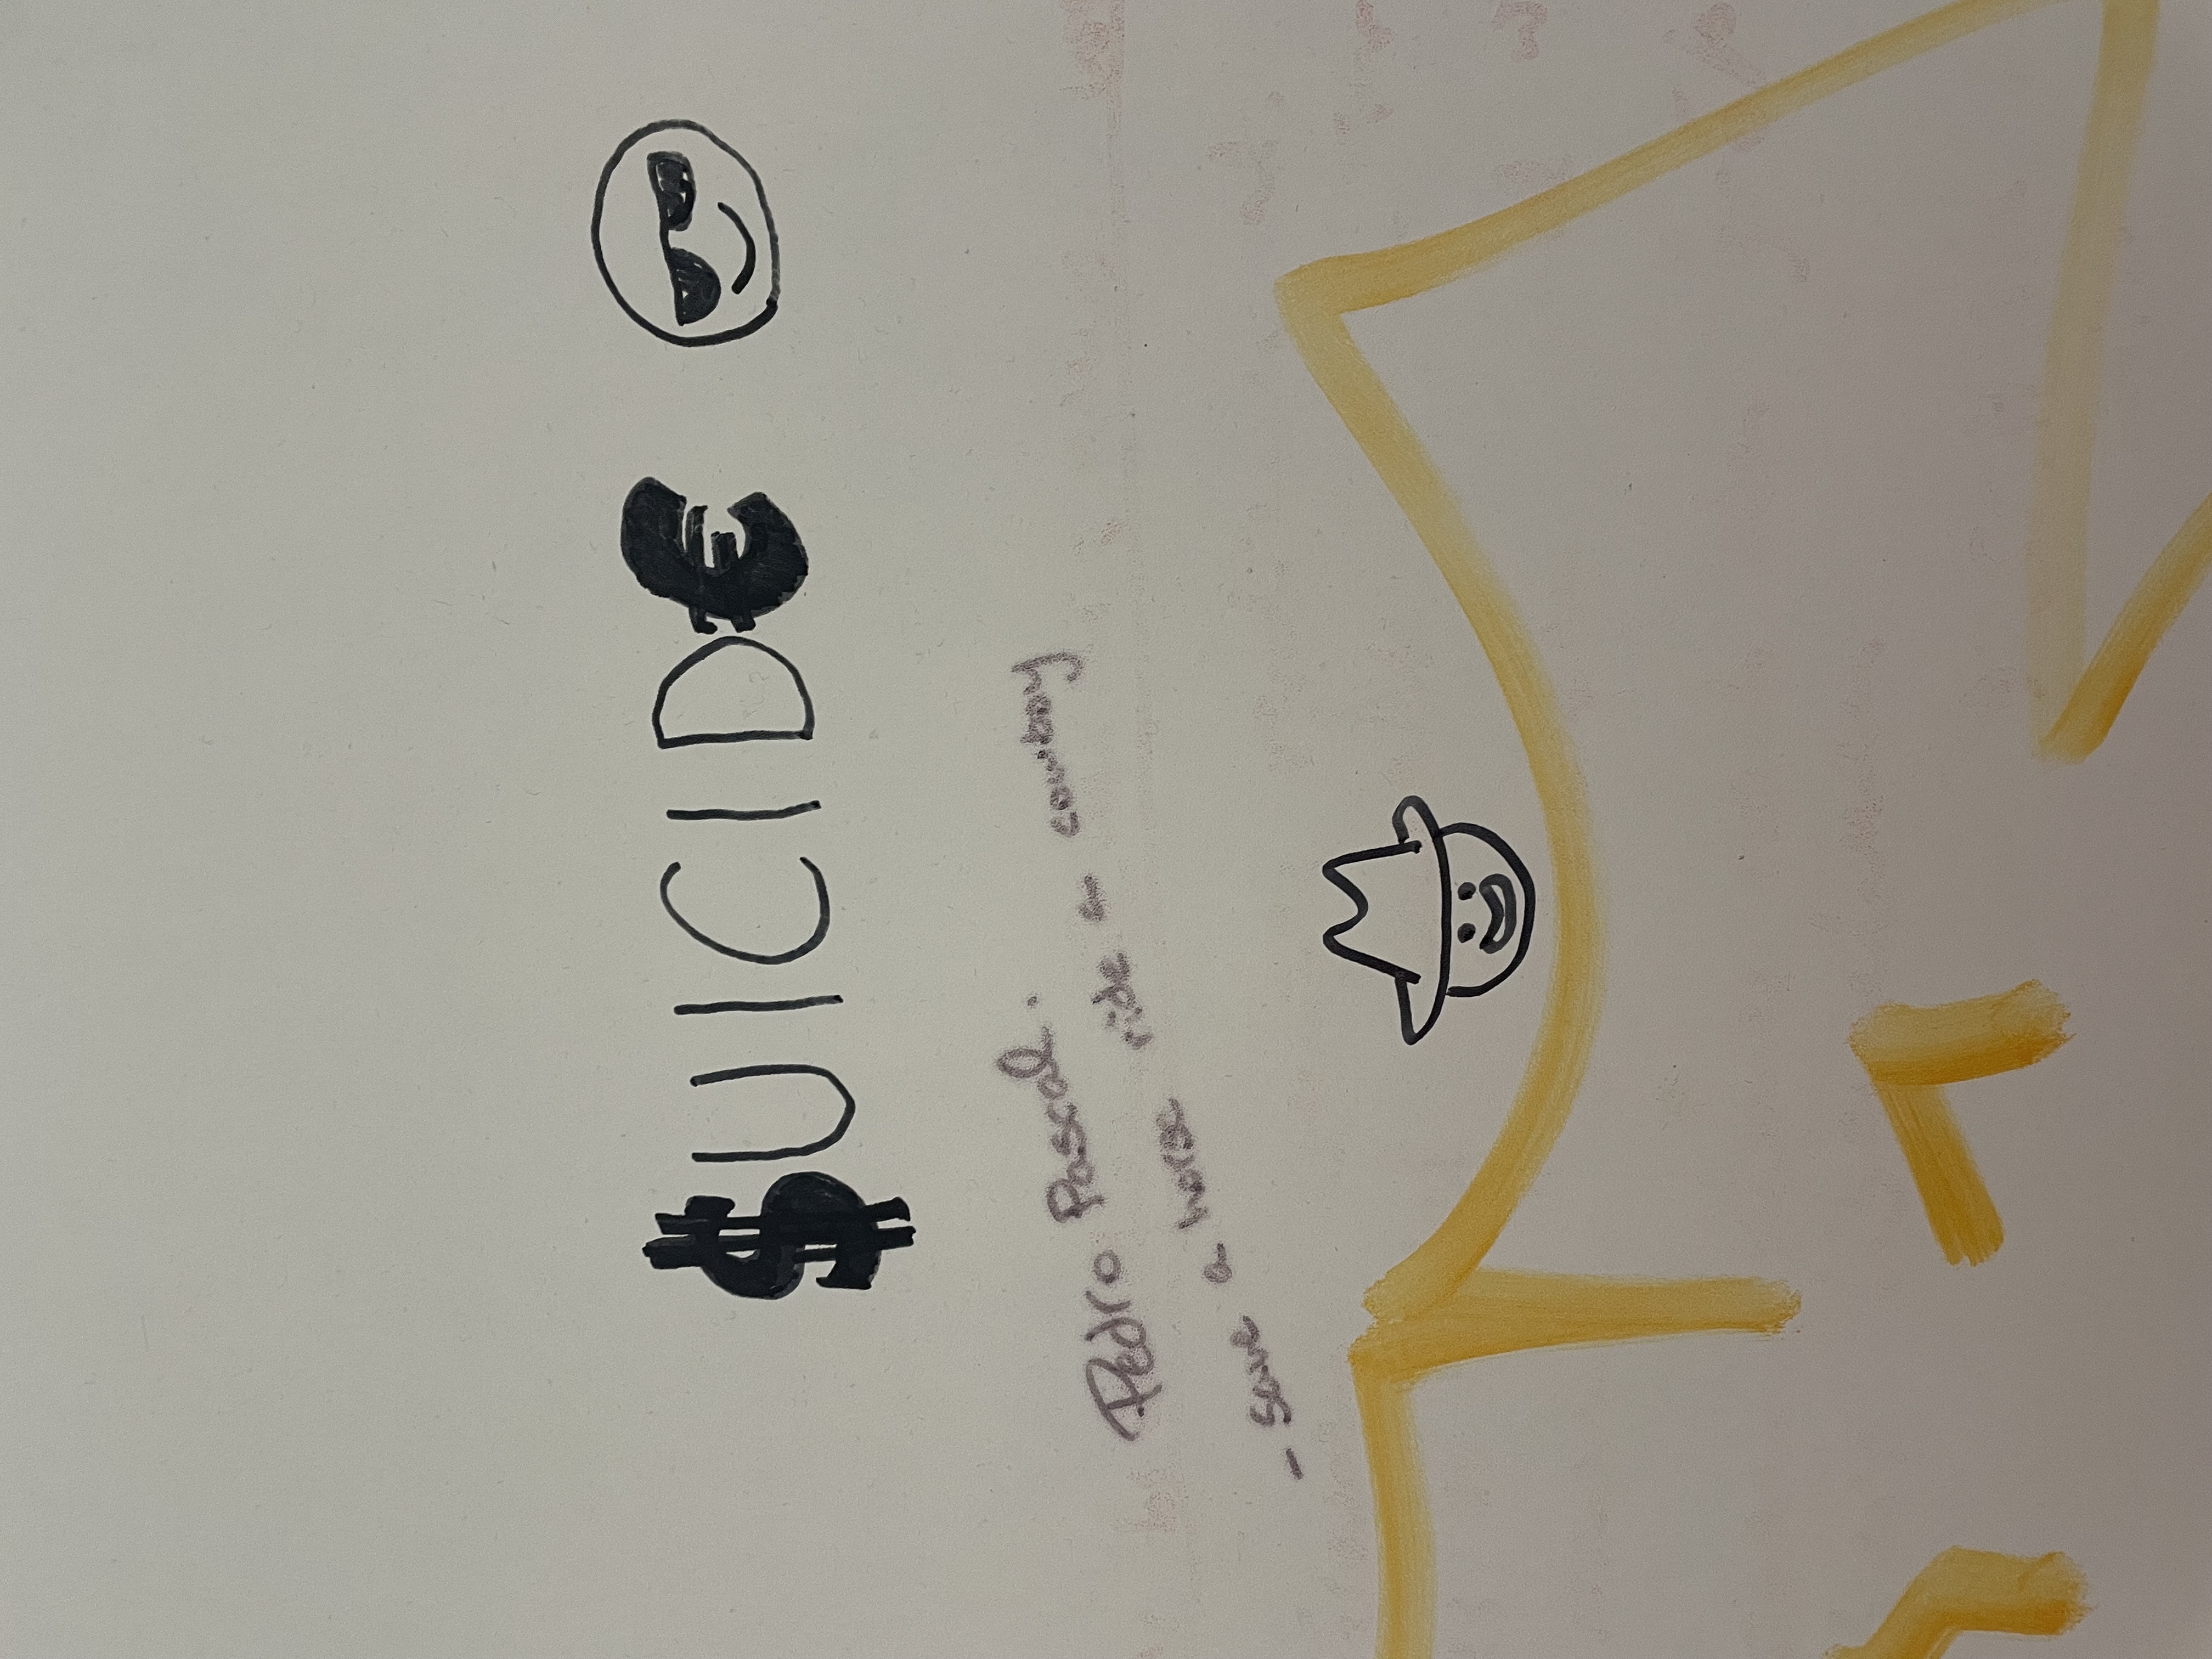 $UICID€
Pedro Pascal.
- save a horse ride a cowboy